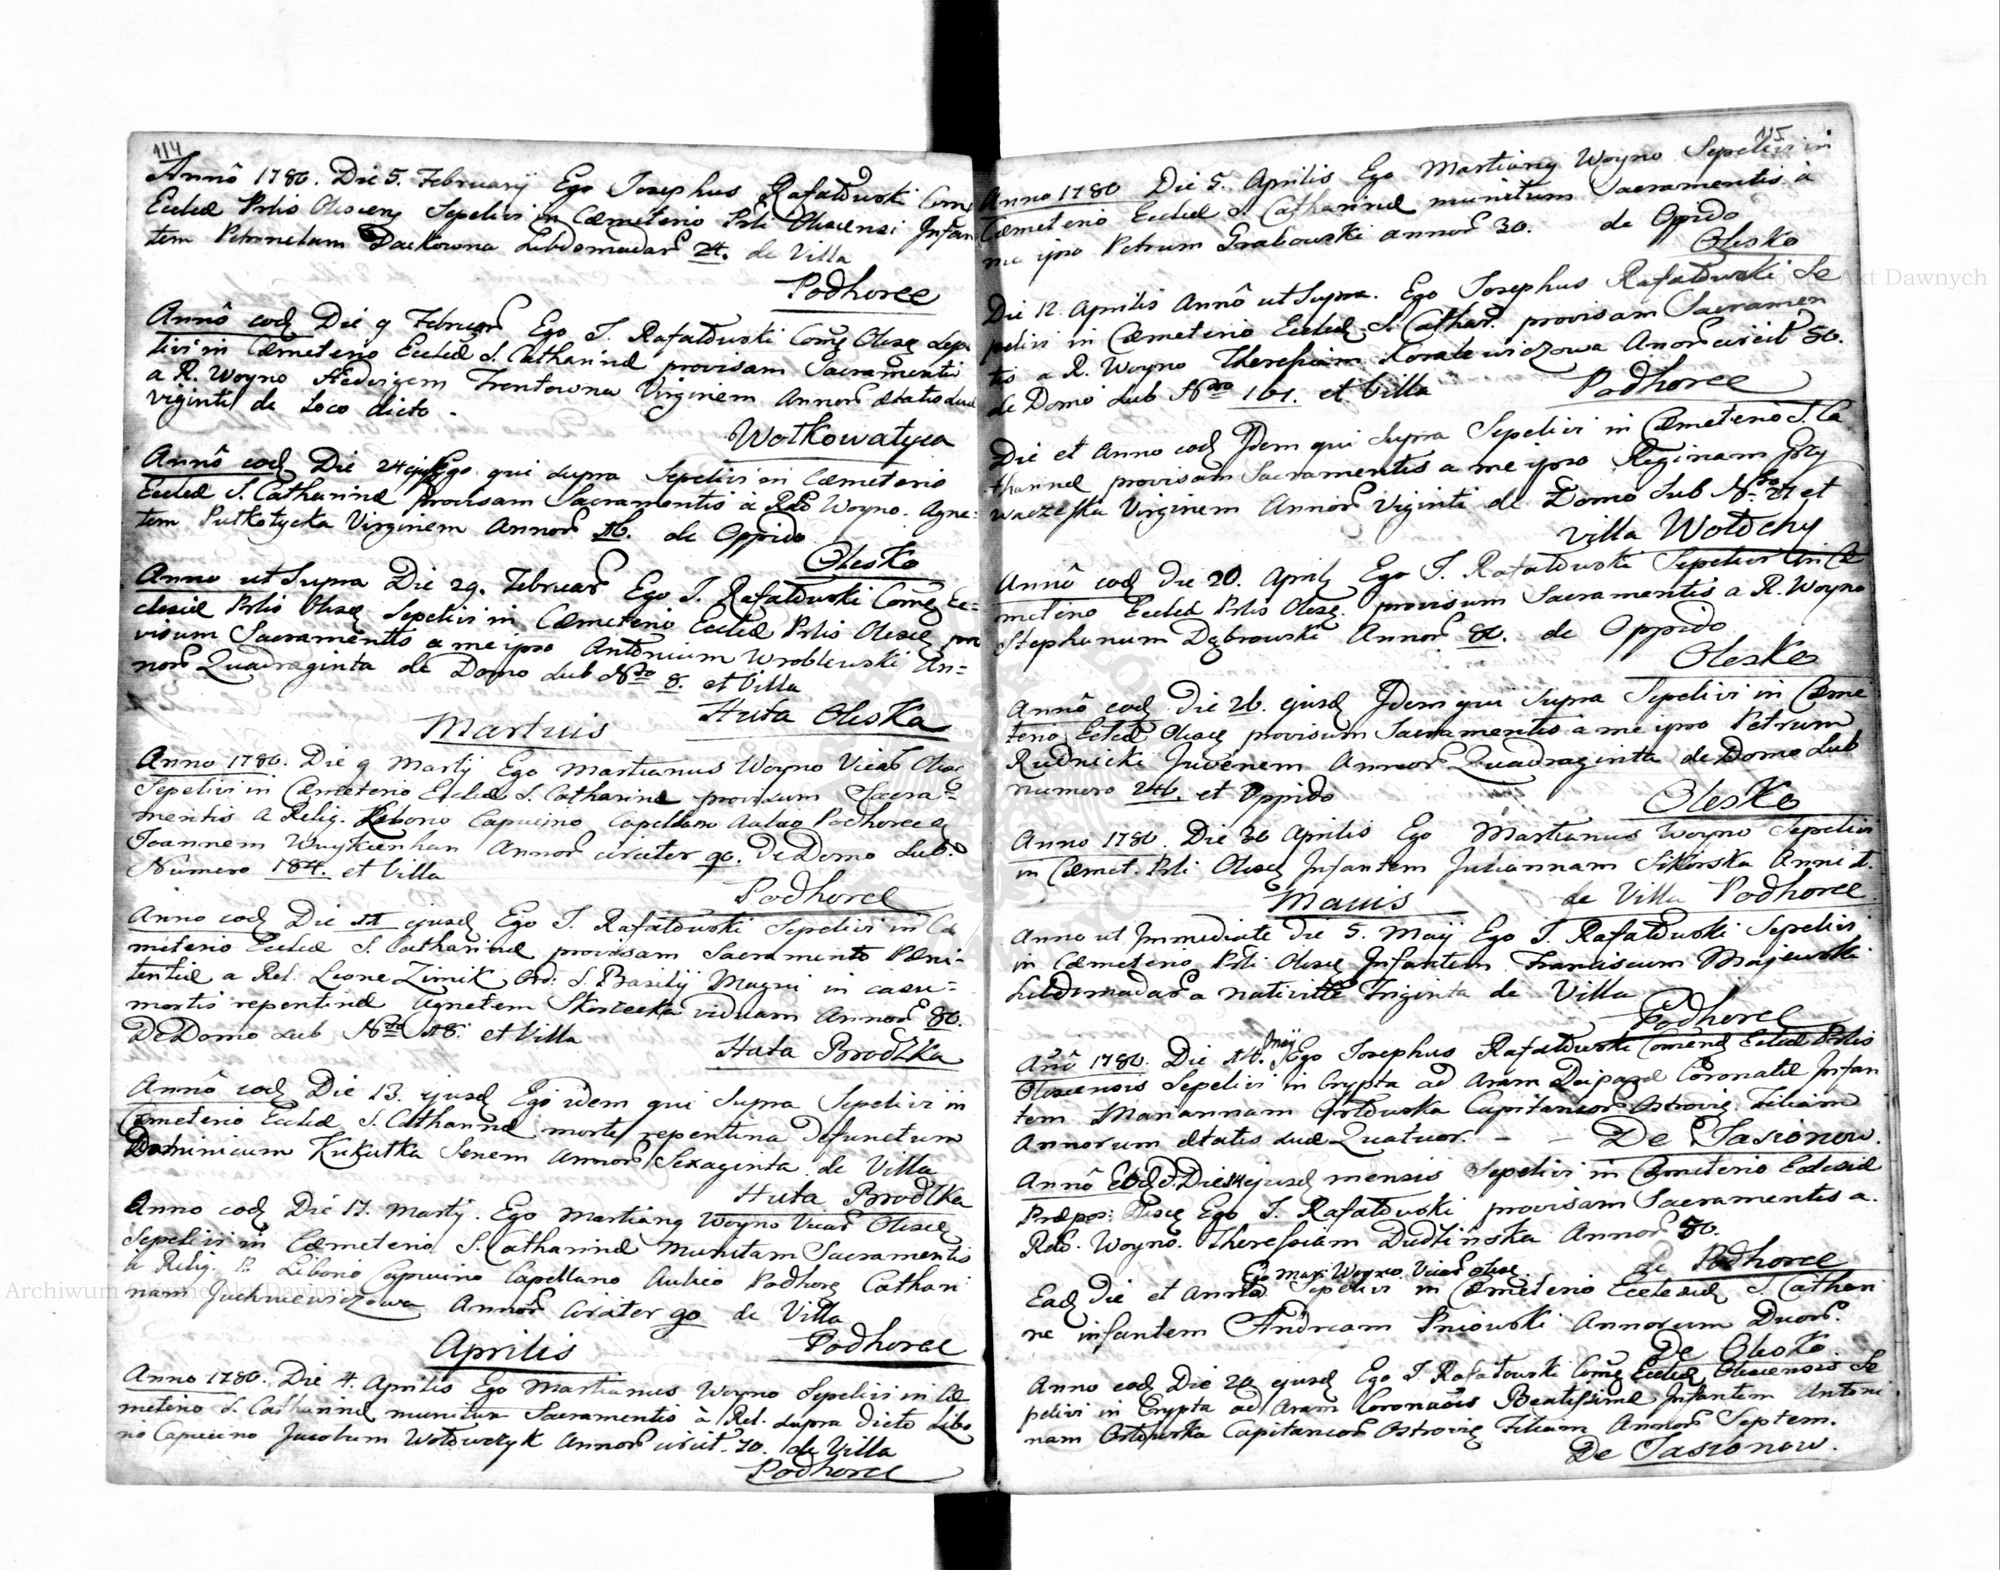 114
Annô 1780. Die 5. Februarij Ego Josephus Rafałowski Com
Eccłæ Prlis Olescenz Sepelivi in Cæmeterio Prli Olescensi Infan
tem Petronelam Daćkowna Hebdomadar 24. de Villa
Podhorce
Annô eod Die 9 Februar Ego J. Rafałowski Comg Olesc Sepe
livi in Cæmeterio Eccłæ S. Catharinæ provisam Sacramenti
a R. Woyno Hedvigem Trentowna Virginem Annor ætatis suæ
viginti de Loco dicto.
Wołkowatyca
Annô eod Die 24 ejusd Ego qui supra Sepelivi in Cæmeterio
Eccłæ S. Catharinæ provisam Sacramentis à Rdo Woyno. Agne=
tem Virginem Annor 16. de Oppido
Olesko
Anno ut Supra Die 29. Februar Ego J. Rafałowski Comg Ec=
clesiæ Prlis Olesc Sepelivi in Cæmeterio Eccłæ Prlis Olesc pro
visum Sacramentis a me ipso Antonium Wroblewski An=
nor Quadraginta de Domo sub Nro 8. et Villa
Huta Oleska
Martuis
Anno 1780. Die 9 Martij Ego Martianus Woyno Vicar Olesc
Sepelivi in Cæmeterio Eccłæ S. Catharinæ provisum Sacra=
mentis a Relig. Libono Capucino Capellano Aulæo Podhorcæ
Joannem Annor circiter 90. De Domo Sub.
Numero 184. et Villa
Podhorce
Anno eod Die 11 ejusd Ego J. Rafałowski Sepelivi in Cæ
meterio Eccłæ S. Catharinæ provisam Sacramento Pæni=
tentiæ a Rel. Leone Zinik Ord: S. Basilij Magni in casu=
mortis repentinæ Agnetem viduam Annor 80.
De Domo sub Nro 18. et Villa
Huta Brodzka
Annô eod Die 13. ejusd Ego idem qui Supra Sepelivi in
Cæmeterio Eccłæ S. Catharinæ morte repentina defunctum
Dominicum Kukułka Senem Annor Sexaginta de Villa
Huta Brodzka
Anno eod Die 17. Martij. Ego Martiang Woyno Vicar Olesc
Sepelivi in Cæmeterio S. Catharinæ Munitam Sacramentis
à Relig. P. Liborio Capucino Capellano Aulico Podhorc Cathari
nam Juchniewiczowa Annor Circiter 90 de Villa
Podhorce
Aprilis
Anno 1780. Die 4. Aprilis Ego Martianus Woyno Sepelivi in Cæ
meterio S. Catharinæ munitum Sacramentis à Rel. supra dicto Libo
no Capucino Jacobum Wołowczyk Annor circit. 70. de Villa
Podhorce
115
Anno 1780 Die 5. Aprilis Ego Martiang Woyno Sepelivi in
Cæmeterio Eccłæ S. Catharinæ munitum Sacramentis à
me ipso Petrum Grabowski annor 30. de Oppido
Olesko
Die 12. Aprilis Annô ut Supra. Ego Josephus Rafałowski Se
pelivi in Cæmeterio Eccłæ S. Cathar. provisam Sacramen
tis a R. Woyno Theressiam Koralewiczowa Anor circit 50.
de Domo sub Nro 161. et Villa Podhorce
Die et Anno eod Idem qui supra Sepelivi in Cæmeterio S. Ca
tharinæ provisam Sacramentis a me ipso Reginam
Virginem Annor Viginti de Domo Sub Nro et
Villa Wołochy
Annô eod Die 20. April Ego J. Rafałowski Sepelivi in Cæ
meterio Eccłæ Prlis Olesc. provisum Sacramentis a R. Woyno
Stephanum Dąbrowski Annor 80. de Oppido
Olesko
Annô eod Die 26. ejusd Idem qui Supra Sepelivi in Cæme
terio Eccłæ Olesc provisum Sacramentis à me ipso Petrum
Rudnicki Juvenem Annor Quadraginta de Domo Sub
numero 246. et Oppido
Olesko
Anno 1780. Die 30 Aprilis Ego Martianus Woyno Sepelivi
in Cæmet. Prli Olesc Infantem Juliannam Sikorska Anni 1.
de Villa Podhorce
Maius
Anno ut Immediate Die 5. Maij Ego J. Rafałowski Sepelivi
in Cæmeterio Prli Olesc Infantem Franciscum Majewski
hebdomadar a nativitte Triginta de Villa
Podhorce
Anô 1780. Die 14. Maij Ego Josephus Rafałowski Comend Eccłæ Prlis
Olescensis Sepelivi in Crypta ad Aram Deiparæ Coronatæ Infan
tem Mariannam Orłowska Capitaneor Ostrovie. Filiam
Annorum ætatis suæ Quatuor. - - De Sassonow.
Annô Eod Die 14 ejusd mensis Sepelivi in Cæmeterio Eclesiæ
Præpos: Olesc Ego J. Rafałowski provisam Sacramentis a.
Rdo. Woyno. Theressiam Dudzinska Annor 50.
de Podhorce
Ego Mar: Woyno Vicar Olesc.
Ead Die et Anno Sepelivi in Cæmeterio Ecclesiæ S. Cathari
næ infantem Andream Pniowski Annorum Duor.
De Olesko.
Anno eod Die 20 ejusd Ego J. Rafałowski Comg Eccłæ Olescensis Se
pelivi in Crypta ad Aram Coronatæ Beatissimæ Infantem Antoni
nam Orłowska Capitaneor Ostrovie Filiam Annor Septem.
De Sassonow.